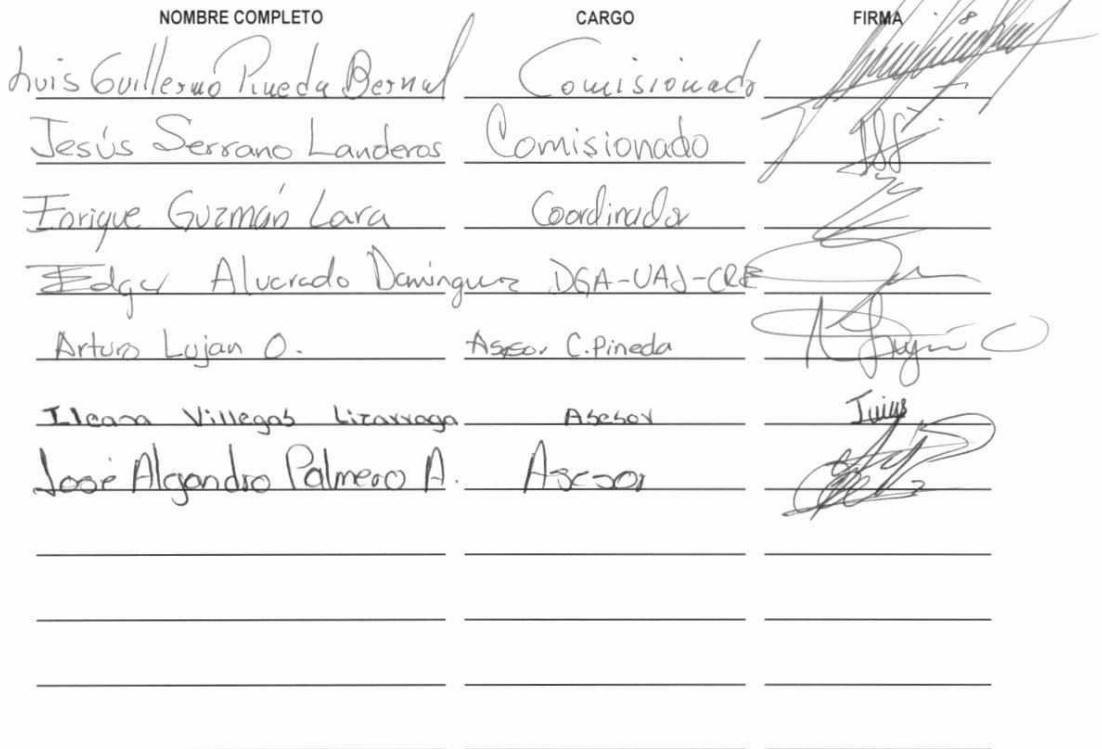 NOMBRE COMPLETO CARGO FIRMA
Luis Guillermo Pineda Bernal Comisionado
Jesús Serrano Landeros Comisionado
Enrique Guzmán Lara Coordinador
Edgar Alvarado Domínguez DGA-UAJ-CRE
Arturo Lujan O. Asesor C. Pineda
Ileana Villegas Lizarraga Asesor
José Alejandro Palmero A. Asesor